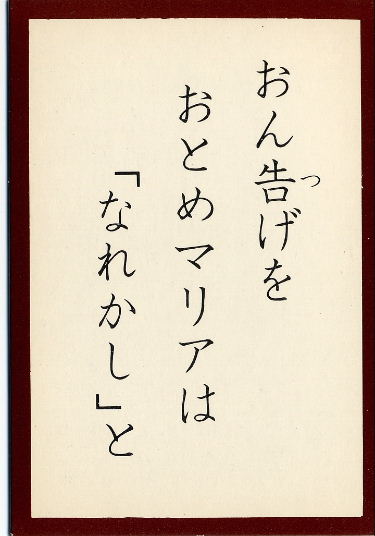 おん告げを
つ
おとめマリアは
「なれかし」と